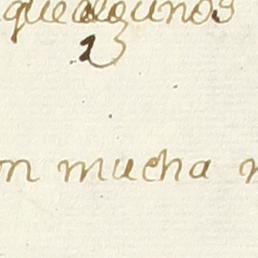 que algunos
2
on mucha